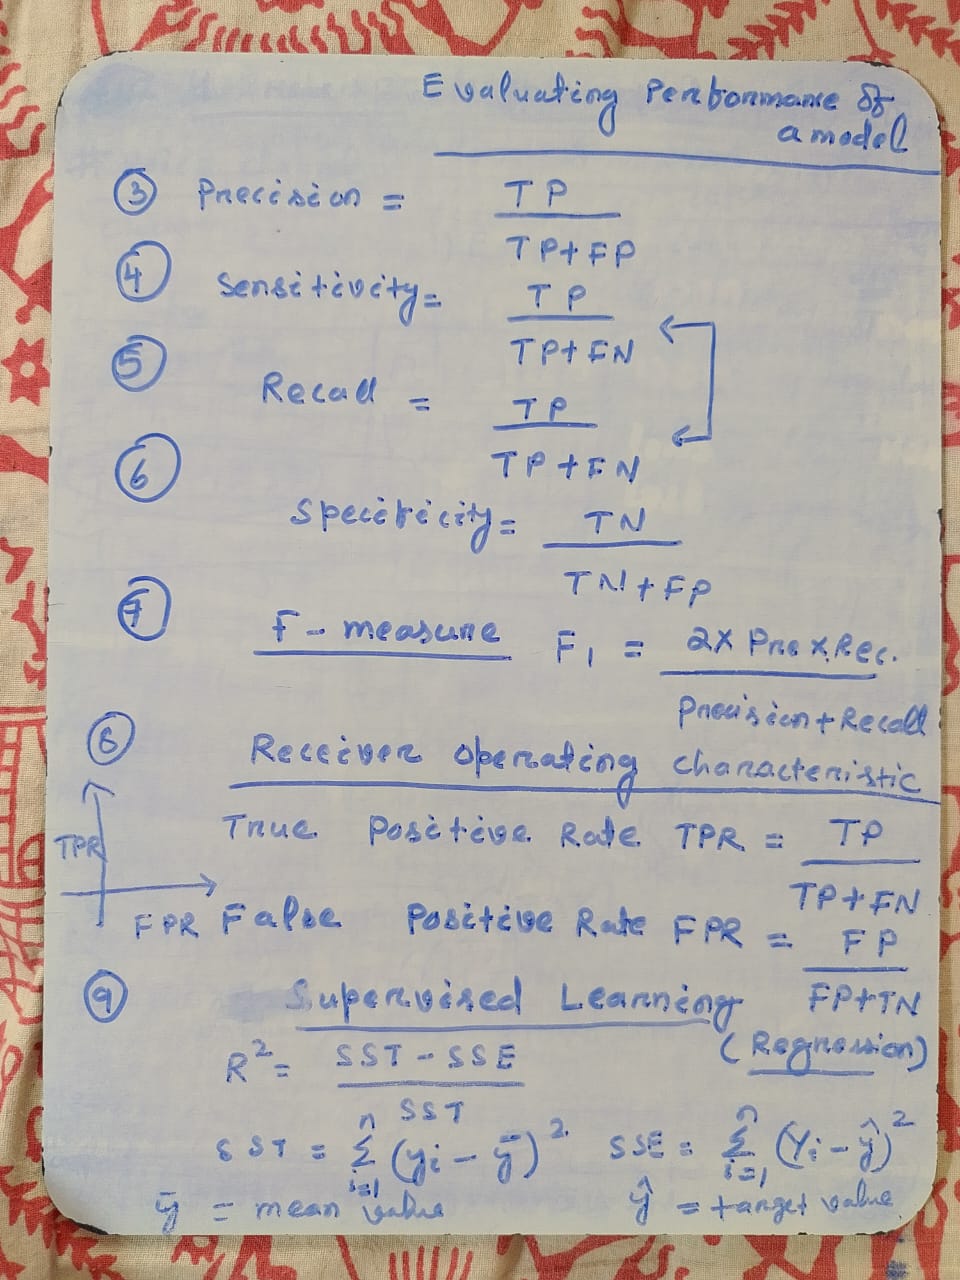 Evaluating Performance of
a model
③ Precision = TP
TP+FP
④ Sensitivity = TP
TP+FN
⑤ Recall = TP
TP+FN
⑥ Specificity = TN
TN+FP
⑦ F-measure F₁ = 2X Pre X Rec.
Precision+Recall
⑧ Receiver operating characteristic
True Positive Rate TPR = TP
TP+FN
TPR
FPR
False Positive Rate FPR = FP
FP+TN
⑨ Supervised Learning
(Regression)
R² = SST - SSE
SST
SST = Σ i=1 n (yi - ȳ)² SSE = Σ i=1 n (Yi - ŷ)²
ȳ = mean value ŷ = target value